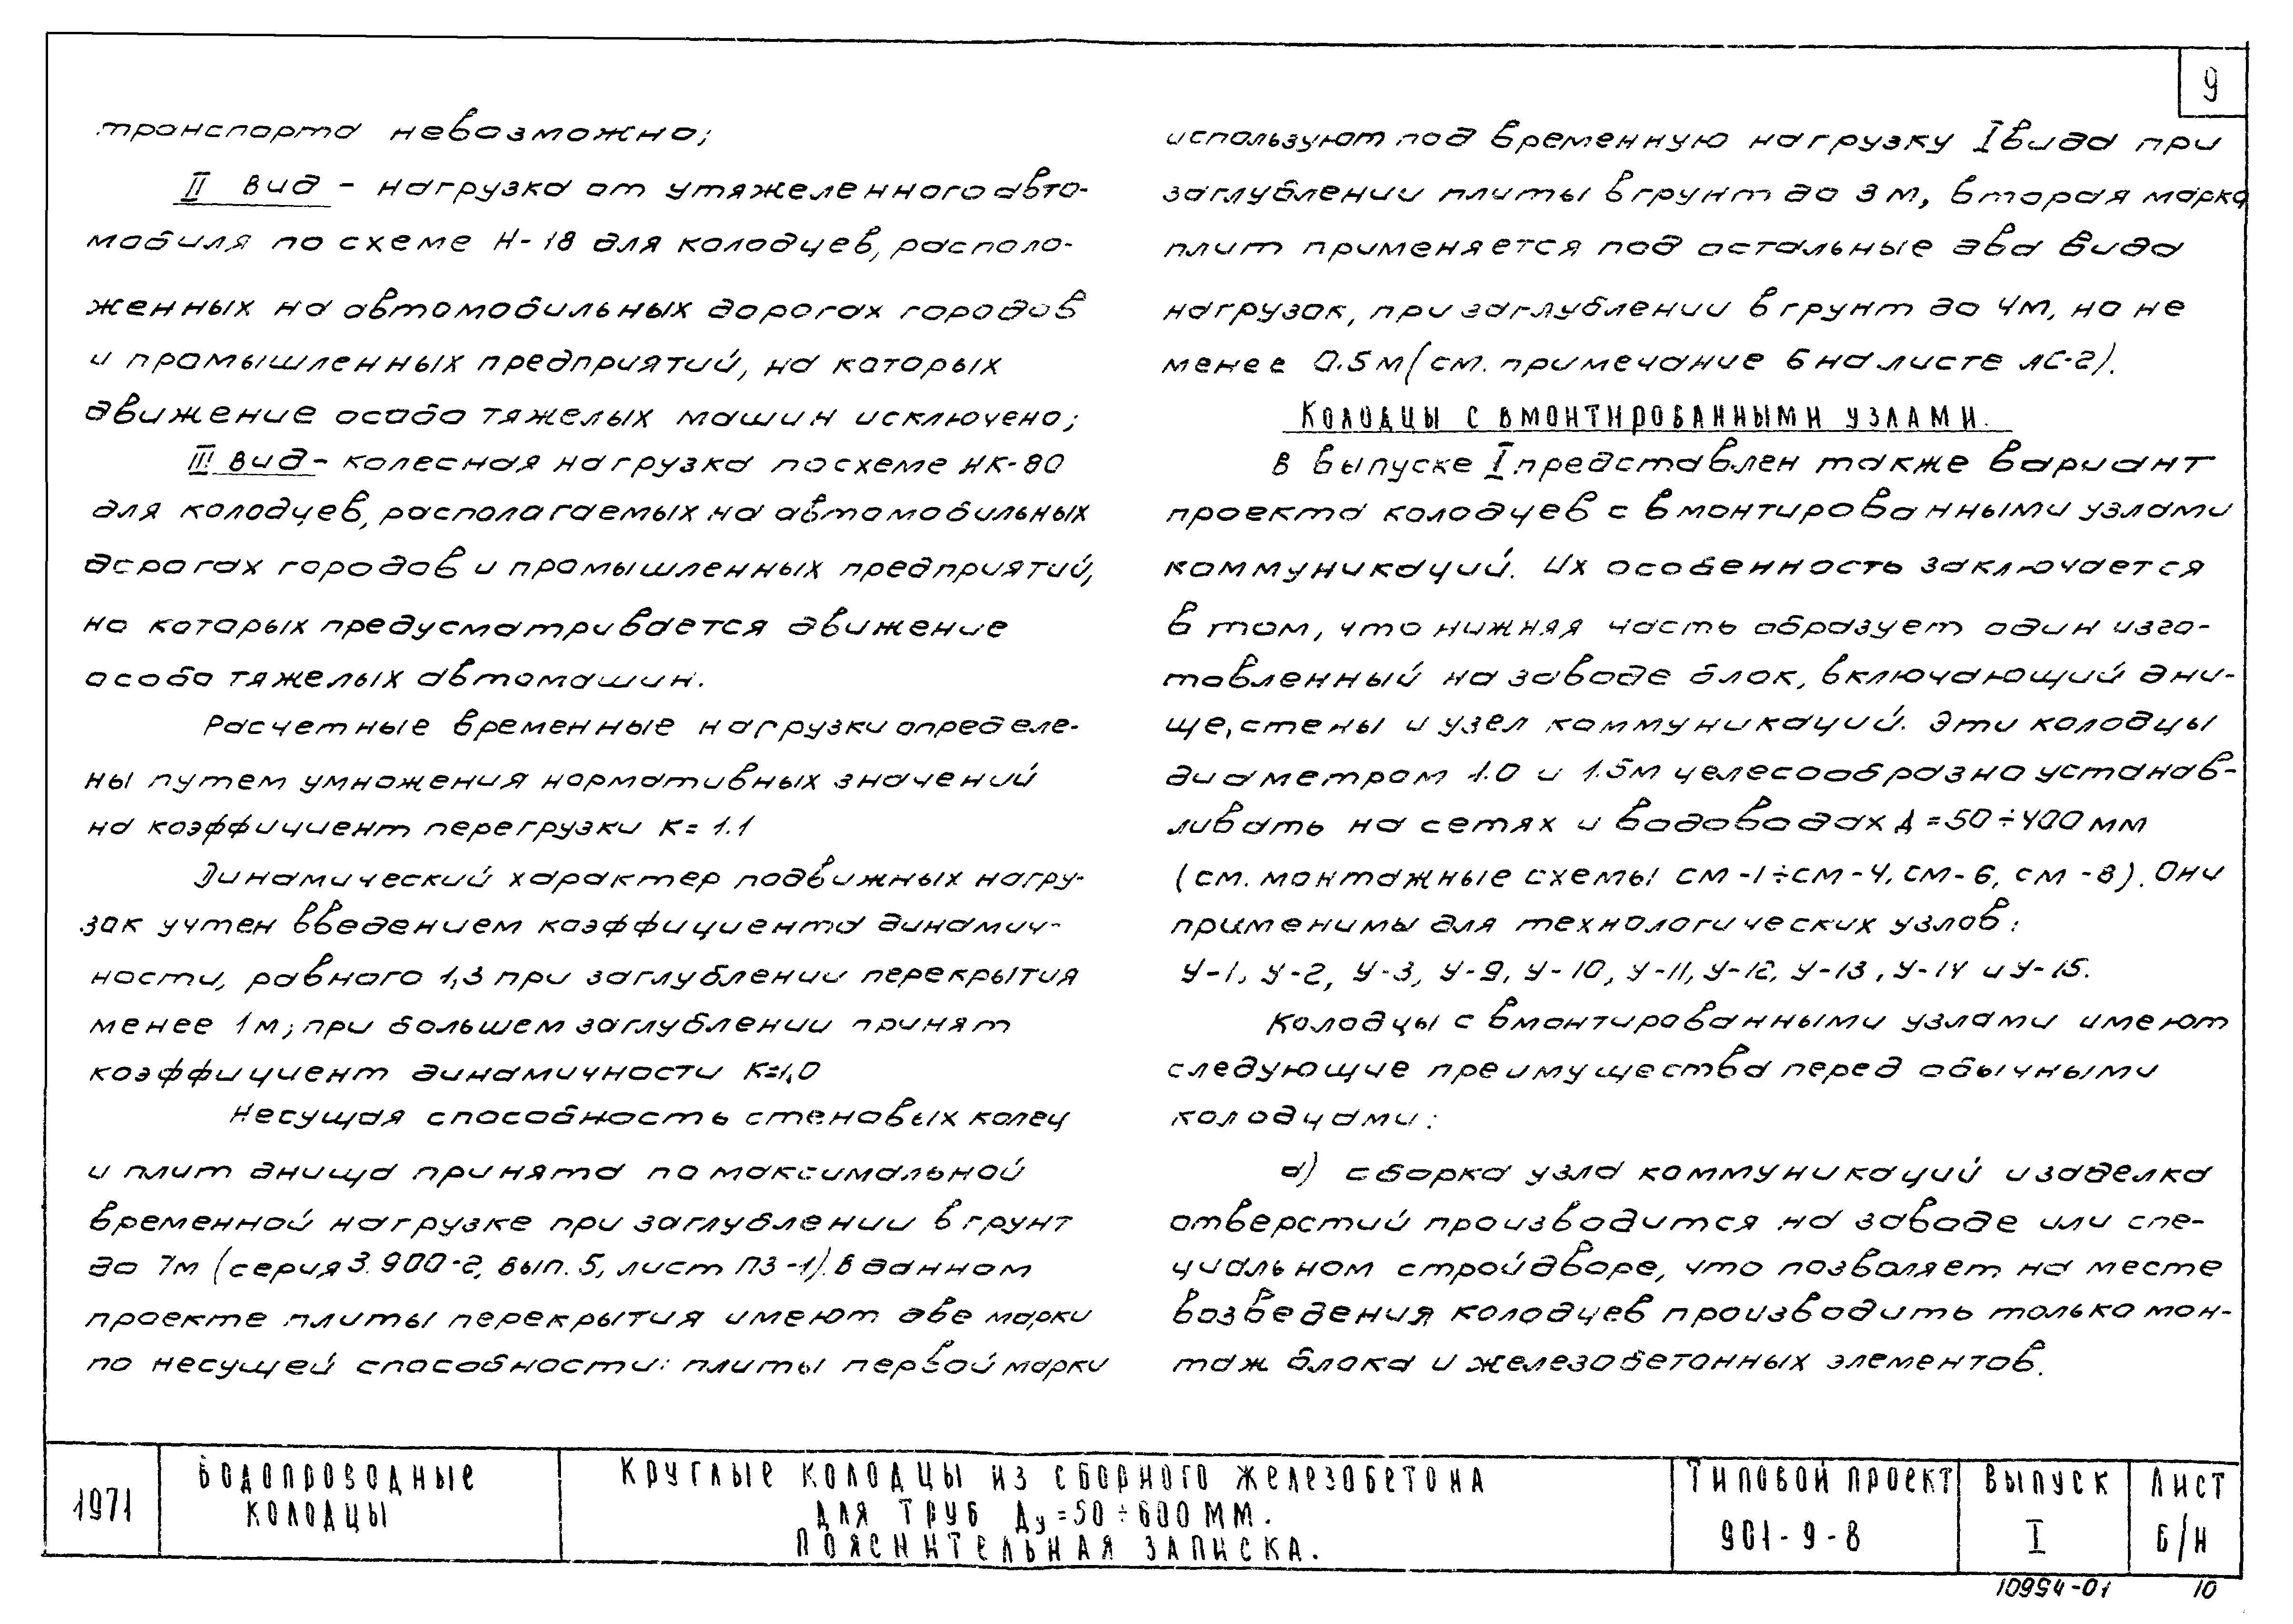 9
транспорта невозможно;
II вид - нагрузка от утяжеленного авто-
мобиля по схеме Н-18 для колодцев, располо-
женных на автомобильных дорогах городов
и промышленных предприятий, на которых
движение особо тяжелых машин исключено;
III вид - колесная нагрузка по схеме НК-80
для колодцев, располагаемых на автомобильных
дорогах городов и промышленных предприятий,
на которых предусматривается движение
особо тяжелых автомашин.
Расчетные временные нагрузки определе-
ны путем умножения нормативных значений
на коэффициент перегрузки К= 1.1
Динамический характер подвижных нагру-
зок учтен введением коэффициента динамич-
ности, равного 1,3 при заглублении перекрытия
менее 1м; при большем заглублении принят
коэффициент динамичности К=1,0
Несущая способность стеновых колец
и плит днища принята по максимальной
временной нагрузке при заглублении в грунт
до 7м (серия 3.900-2, вып. 5, лист ПЗ-1). В данном
проекте плиты перекрытия имеют две марки
по несущей способности: плиты первой марки
используют под временную нагрузку I вида при
заглублении плиты в грунт до 3 м, вторая марка
плит применяется под остальные два вида
нагрузок, при заглублении в грунт до 4м, но не
менее 0.5 м (см. примечание 6 на листе АС-2).
Колодцы с вмонтированными узлами.
В выпуске I представлен также вариант
проекта колодцев с вмонтированными узлами
коммуникаций. Их особенность заключается
в том, что нижняя часть образует один изго-
товленный на заводе блок, включающий дни-
ще, стены и узел коммуникаций. Эти колодцы
диаметром 1.0 и 1.5м целесообразно устанав-
ливать на сетях и водоводах Д=50÷400 мм
(см. монтажные схемы СМ-1÷СМ-4, СМ-6, СМ-8). Они
применимы для технологических узлов:
У-1, У-2, У-3, У-9, У-10, У-11, У-12, У-13, У-14 и У-15.
Колодцы с вмонтированными узлами имеют
следующие преимущества перед обычными
колодцами:
а) сборка узла коммуникаций и заделка
отверстий производится на заводе или спе-
циальном стройдворе, что позволяет на месте
возведения колодцев производить только мон-
таж блока и железобетонных элементов.
1971
Водопроводные
колодцы
Круглые колодцы из сборного железобетона
для труб Ду=50÷600 мм.
Пояснительная записка.
Типовой проект
901-9-8
Выпуск
I
Лист
Б/Н
10994-01 10